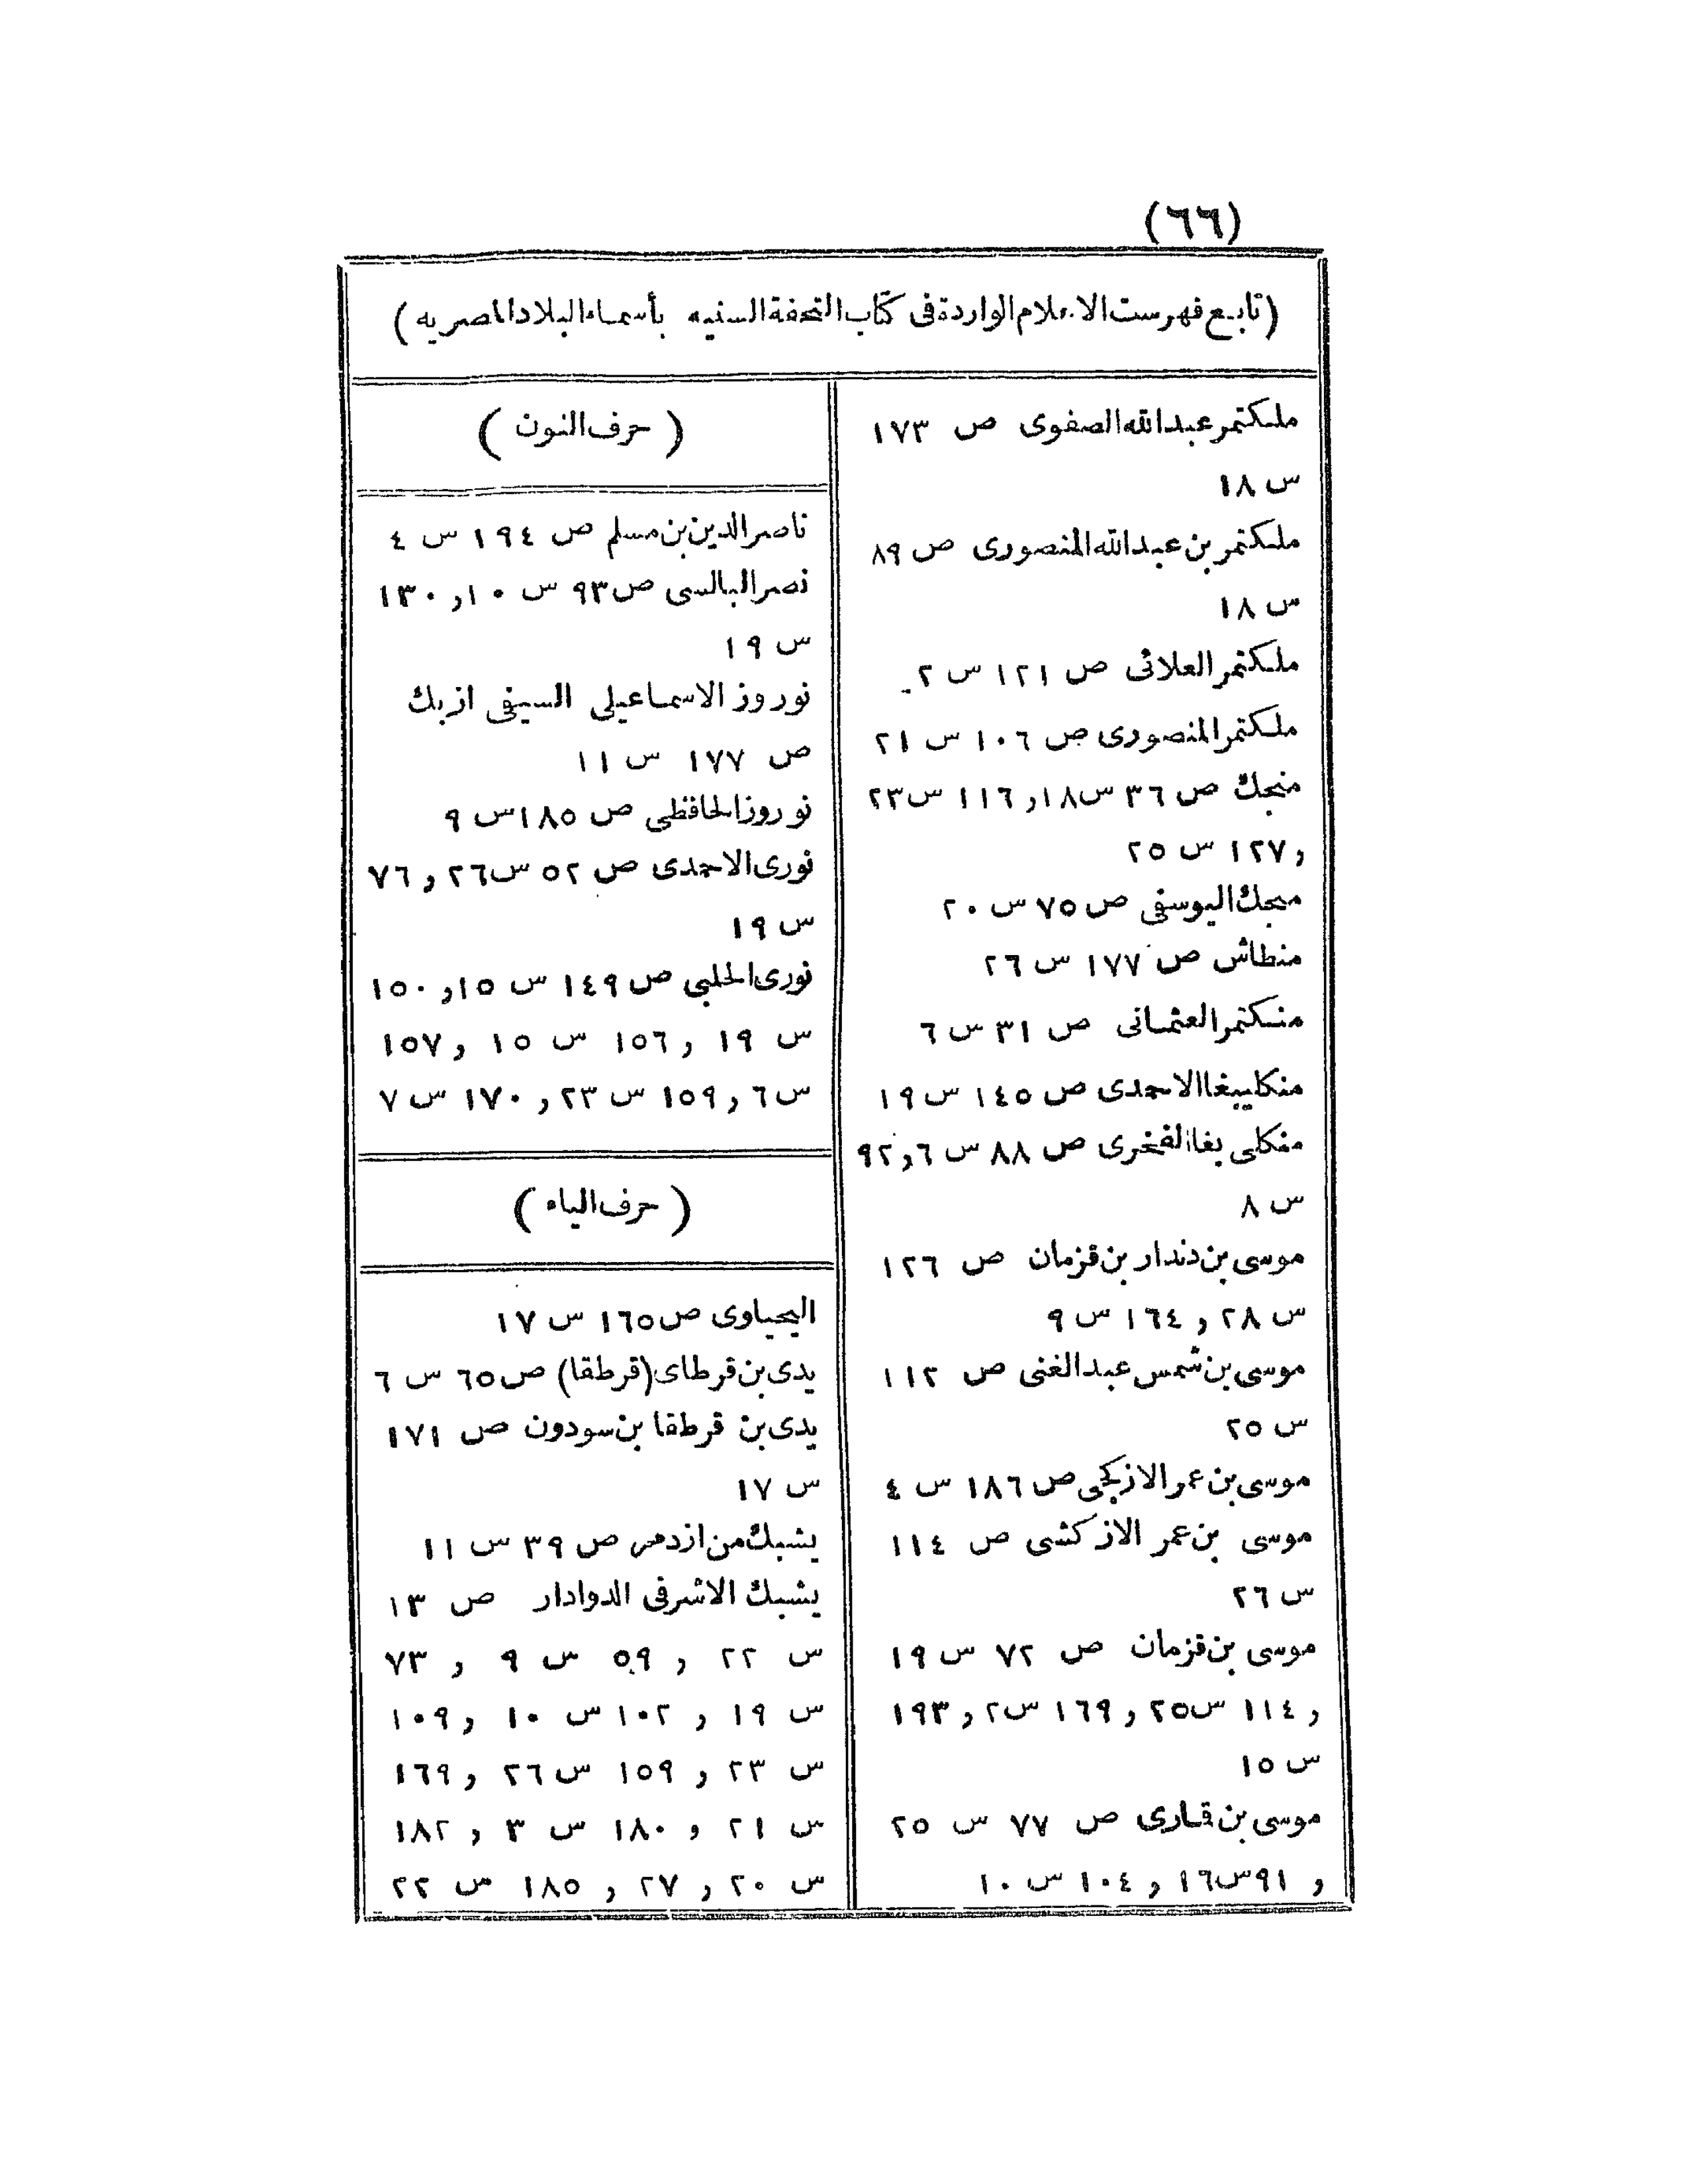 (٦٦)
(تابع فهرست الاعلام الواردة فى كتاب التحفة السنيه بأسماء البلاد المصريه)
ملكتمر عبدالله الصفوى ص ١٧٣
س ١٨
ملكتمر بن عبدالله المنصورى ص ٨٩
س ١٨
ملكتمر العلائى ص ١٢١ س ٢
ملكتمر المنصورى ص ١٠٦ س ٢١
منجك ص ٣٦ س ١٨ و ١١٦ س ٢٣
و ١٢٧ س ٢٥
منجك اليوسفى ص ٧٥ س ٢٠
منطاش ص ١٧٧ س ٢٦
منكتمر العثمانى ص ٣١ س ٦
منكليبغا الاحمدى ص ١٤٥ س ١٩
منكلى بغا الفخرى ص ٨٨ س ٦ و ٩٢
س ٨
موسى بن دندار بن قزمان ص ١٢٦
س ٢٨ و ١٦٤ س ٩
موسى بن شمس عبد الغنى ص ١١٢
س ٢٥
موسى بن عمر الازكجى ص ١٨٦ س ٤
موسى بن عمر الازكشى ص ١١٤
س ٢٦
موسى بن قزمان ص ٧٢ س ١٩
و ١١٤ س ٢٥ و ١٦٩ س ٢ و ١٩٣
س ١٥
موسى بن قارى ص ٧٧ س ٢٥
و ٩١ س ١٦ و ١٠٤ س ١٠
(حرف النون)
ناصر الدين بن مسلم ص ١٩٤ س ٤
نصر البالسى ص ٩٣ س ١٠ و ١٣٠
س ١٩
نوروز الاسماعيلى السيفى ازبك
ص ١٧٧ س ١١
نوروز الحافظى ص ١٨٥ س ٩
نورى الاحمدى ص ٥٢ س ٢٦ و ٧٦
س ١٩
نورى الحلبى ص ١٤٩ س ١٥ و ١٥٠
س ١٩ و ١٥٦ س ١٥ و ١٥٧
س ٦ و ١٥٩ س ٢٣ و ١٧٠ س ٧
(حرف الياء)
اليحياوى ص ١٦٥ س ١٧
يدى بن قرطاى (قرطقا) ص ٦٥ س ٦
يدى بن قرطقا بن سودون ص ١٧١
س ١٧
يشبك من ازدمر ص ٣٩ س ١١
يشبك الاشرفى الدوادار ص ١٣
س ٢٢ و ٥٩ س ٩ و ٧٣
س ١٩ و ١٠٢ س ١٠ و ١٠٩
س ٢٣ و ١٥٩ س ٢٦ و ١٦٩
س ٢١ و ١٨٠ س ٣ و ١٨٢
س ٢٠ و ٢٧ و ١٨٥ س ٢٢